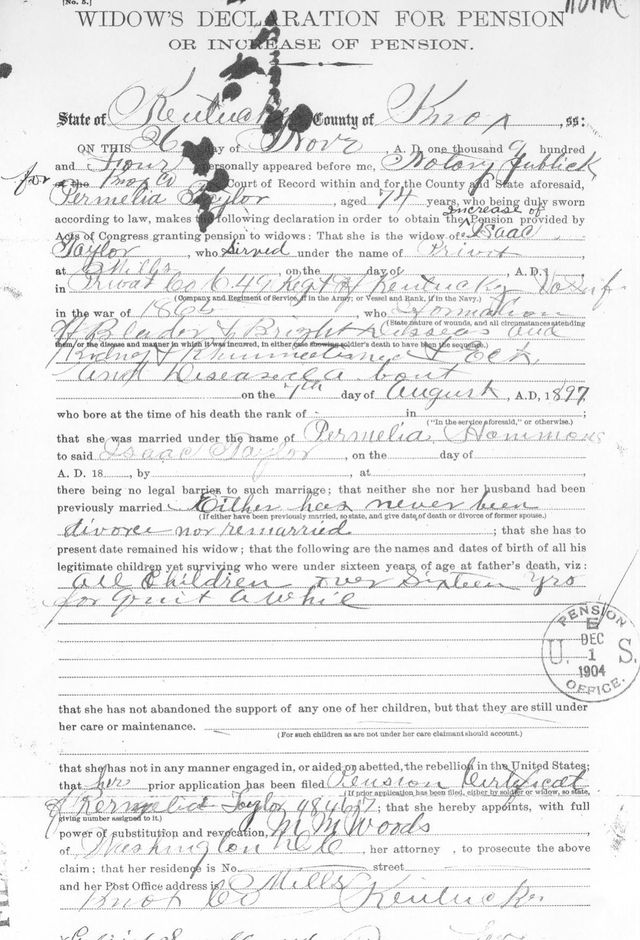 [No. 5.]
WIDOW'S DECLARATION FOR PENSION
OR INCREASE OF PENSION.
State of Kentucky County of Knox, ss:
ON THIS 26 day of Novr, A. D. one thousand 9 hundred
and Four personally appeared before me, Notary Publick
for the Knox Co Court of Record within and for the County and State aforesaid,
Permelia Taylor, aged 74 years, who being duly sworn
according to law, makes the following declaration in order to obtain the increase of Pension provided by
Acts of Congress granting pension to widows: That she is the widow of Isaac
Taylor, who served under the name of Privit
at Mills, on the day of, A. D. 1
in Privat Co 6. 49 Regt of Kentucky
(Company and Regiment of Service, if in the Army; or Vessel and Rank, if in the Navy.)
in the war of 186, who
(State nature of wounds, and all circumstances attending
of Blader & Bright and
them, or the disease and manner in which it was incurred, in either case showing soldier's death to have been the sequence.)
Kidney &
and Diseased a bout
on the 7th day of August, A. D, 1897
who bore at the time of his death the rank of in ;
("In the service aforesaid," or otherwise.)
that she was married under the name of Permelia Hammons
to said Isaac Taylor, on the day of
A. D. 18, by, at
there being no legal barrier to such marriage; that neither she nor her husband had been
previously married. Either has never been
(If either have been previously married, so state, and give date of death or divorce of former spouse.)
divorce nor remarried; that she has to
present date remained his widow; that the following are the names and dates of birth of all his
legitimate children yet surviving who were under sixteen years of age at father's death, viz:
all Children over Sixteen yrs
for quit a whil
PENSION
E
DEC
U. 1 S.
1904
OFFICE.
that she has not abandoned the support of any one of her children, but that they are still under
her care or maintenance.
(For such children as are not under her care claimant should account.)
that she has not in any manner engaged in, or aided or abetted, the rebellion in the United States;
that her prior application has been filed Pension Certyficat
(If prior application has been filed, either by soldier or widow, so state,
of Permelia Taylor 484657; that she hereby appoints, with full
giving number assigned to it.)
power of substitution and revocation, M M Woods
of Washington D C, her attorney, to prosecute the above
claim; that her residence is No. street
and her Post Office address is Mills
Knox Co Kentucky